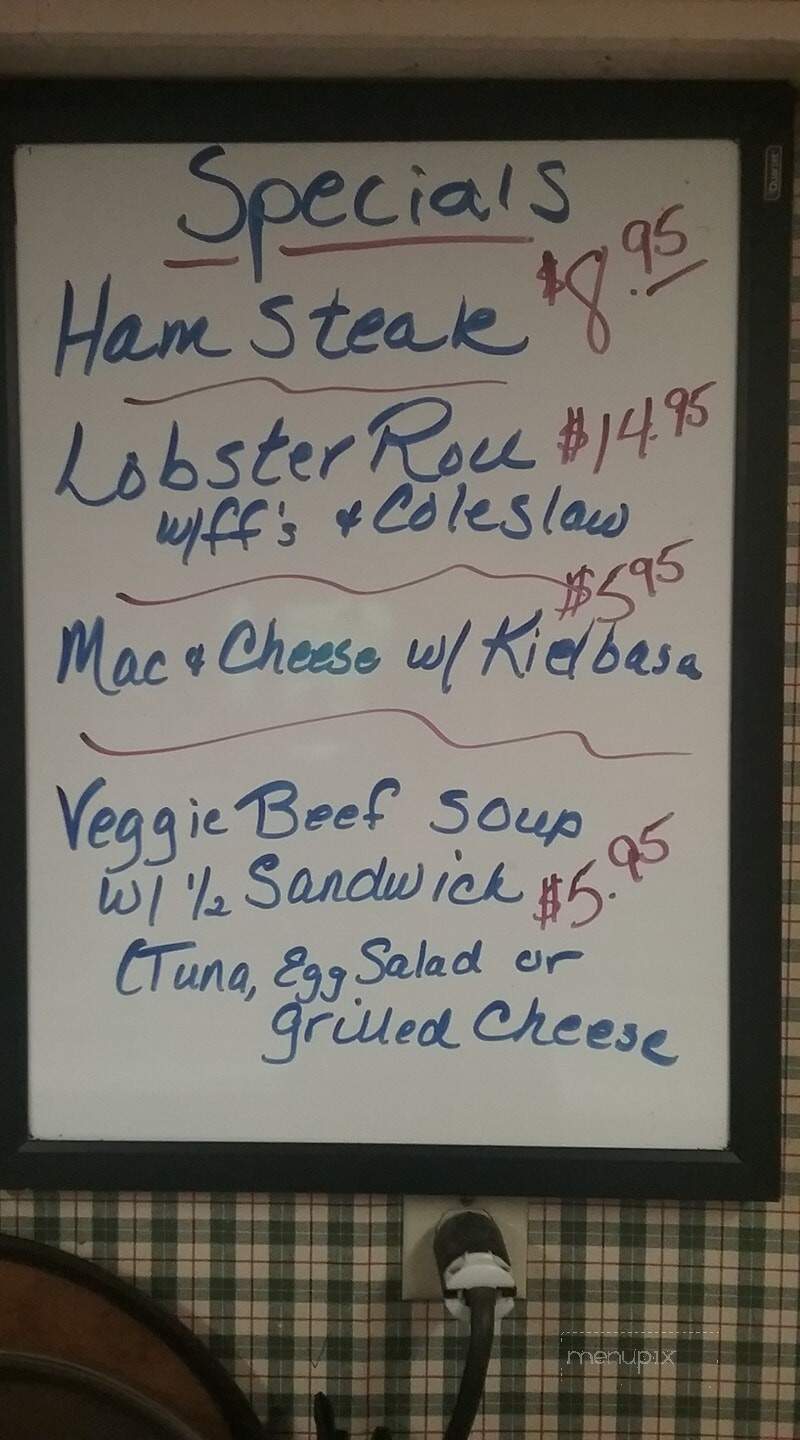 Quartet
Specials
Ham Steak $8.95
Lobster Roll $14.95
w/ff's & Coleslaw
$5.95
Mac & Cheese w/ Kielbasa
Veggie Beef Soup
w/ 1/2 Sandwich $5.95
(Tuna, Egg Salad or
grilled Cheese
menupix